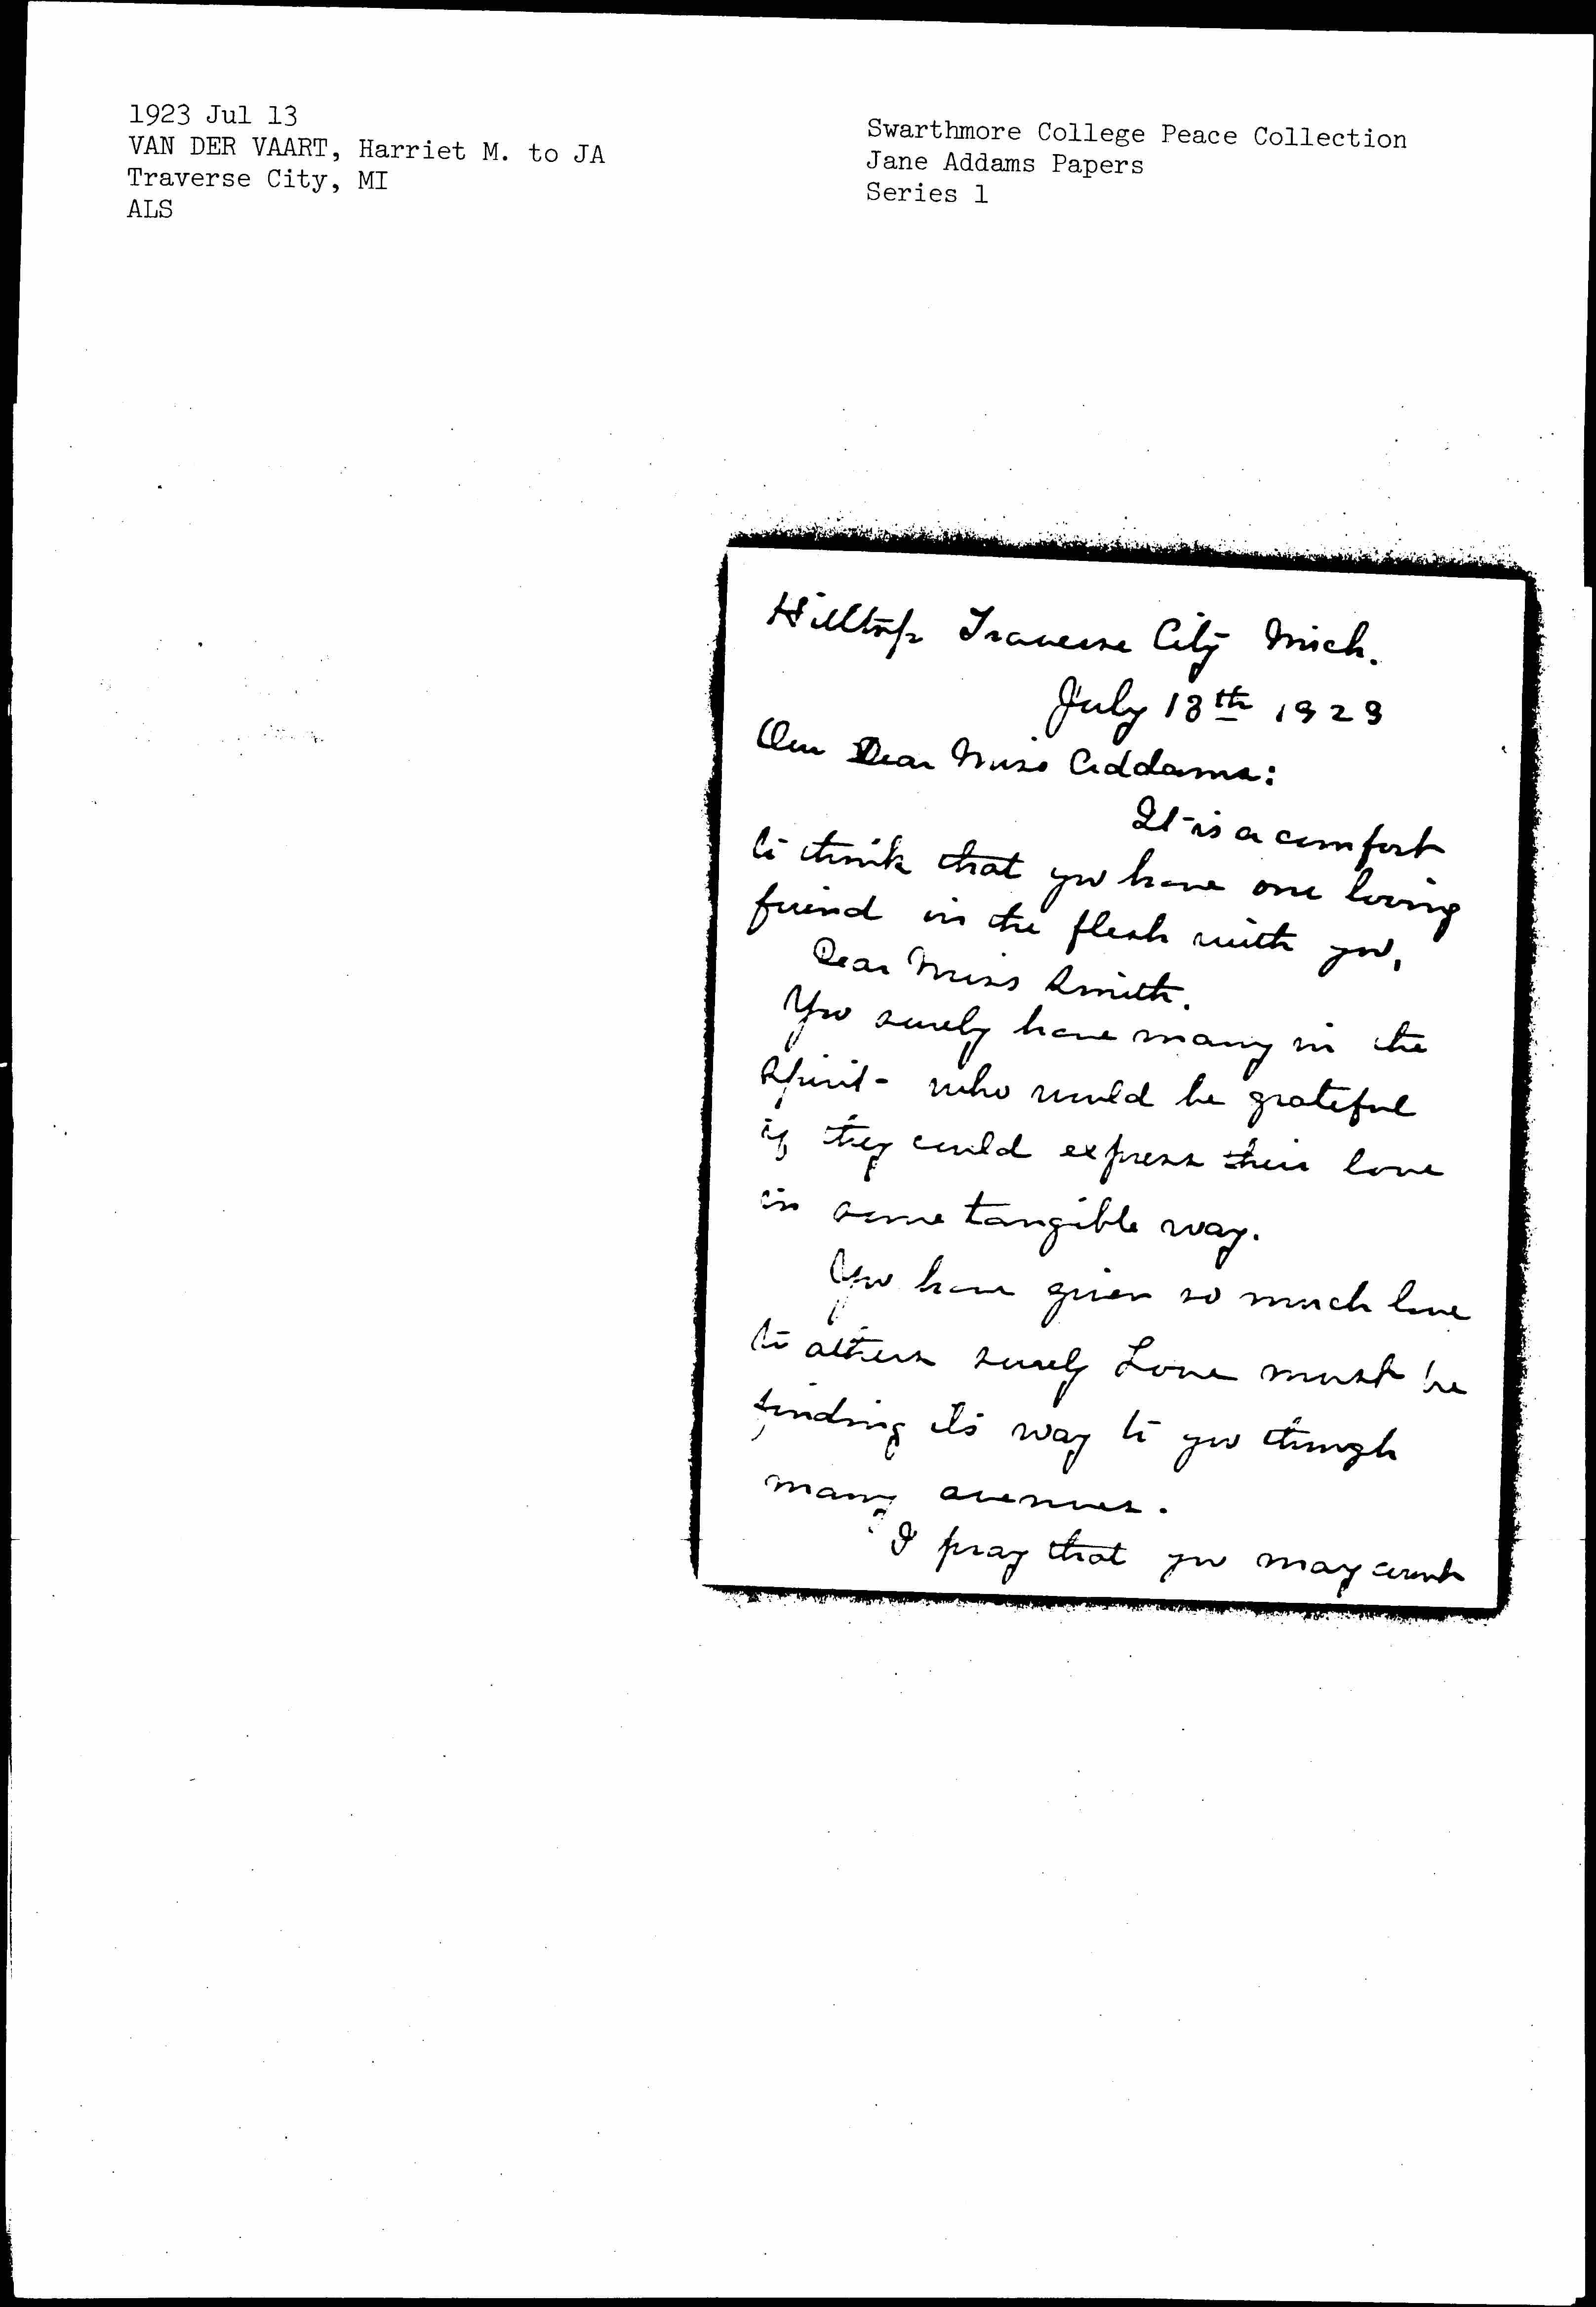 1923 Jul 13
VAN DER VAART, Harriet M. to JA
Traverse City, MI
ALS
Swarthmore College Peace Collection
Jane Addams Papers
Series 1
Hilltop Traverse City Mich.
July 13th 1923
Our Dear Miss Addams:
It is a comfort
to think that you have one loving
friend in the flesh with you,
Dear Miss Smith.
You surely have many in the
spirit - who would be grateful
if they could express their love
in some tangible way.
You have given so much love
to others surely Love must be
finding its way to you through
many avenues.
I pray that you may count